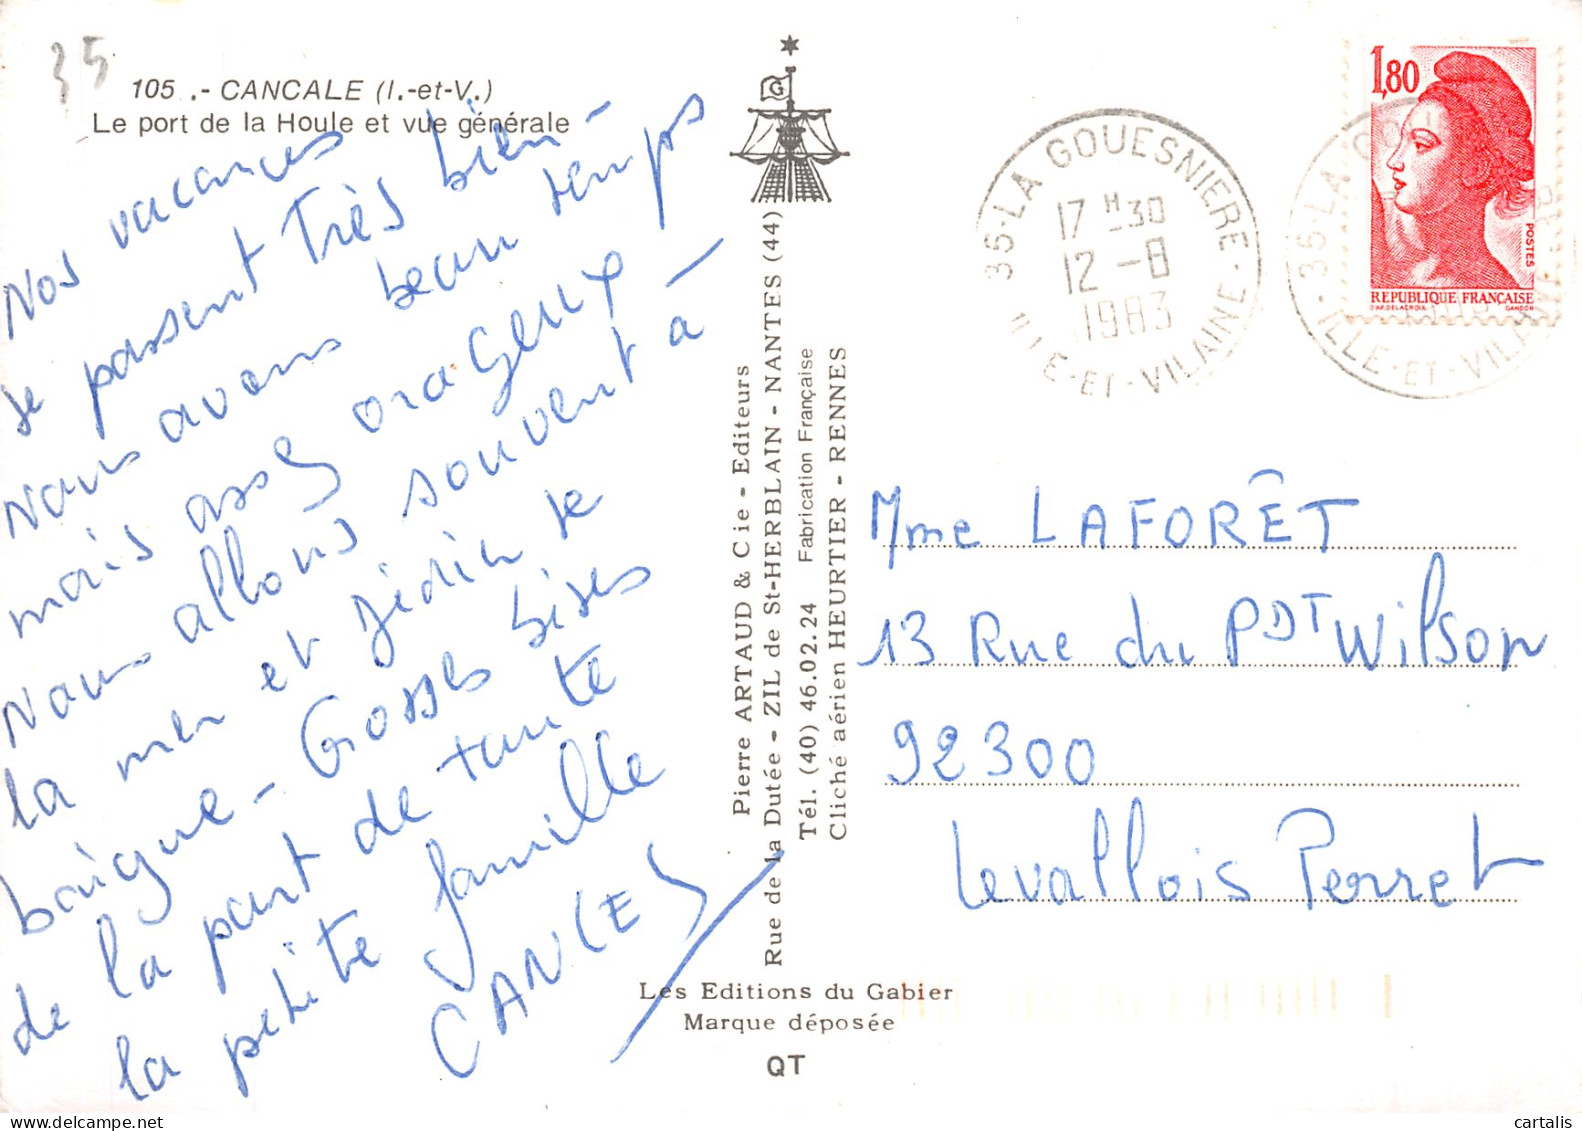 35
105 .- CANCALE (I.-et-V.)
Le port de la Houle et vue générale
Nos vacances
se passent Très bien -
Nous avons beau temps
mais assez orageux
Nous allons souvent à -
la mer et Jédin se
baigne - Grosses bises
de la part de tante
la petite famille
CANCES
G
Pierre ARTAUD & Cie - Editeurs
Rue de la Dutée - ZIL de St-HERBLAIN - NANTES (44)
Tél. (40) 46.02.24 Fabrication Française
Cliché aérien HEURTIER - RENNES
Les Editions du Gabier
Marque déposée
QT
35-LA GOUESNIERE
17 H 30
12 -8
1983
ILLE-ET-VILAINE
1,80
POSTES
REPUBLIQUE FRANÇAISE
D'AP. DELACROIX GANDON
35-LA GOU RE
ILLE-ET-VILAINE
Mme LAFORÊT
13 Rue du PDT Wilson
92300
Levallois Perret
cartalis